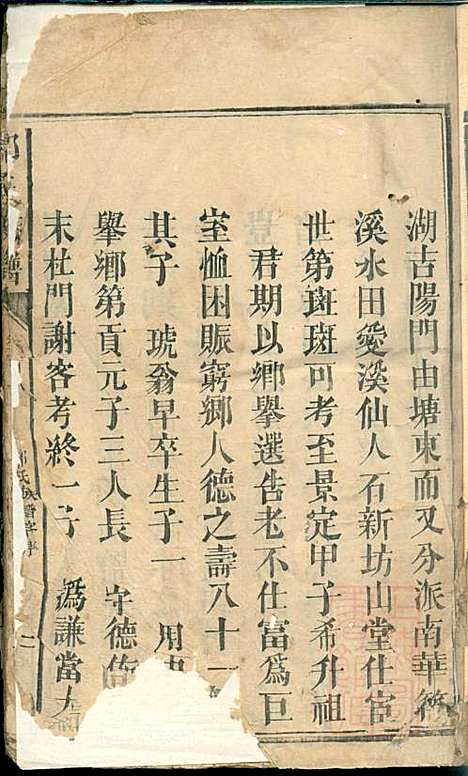 湖吉陽門由塘東而又分派南華筱
溪水田愛溪仙人石新坊山堂仕宦
世第斑斑可考至景定甲子希升祖
君期以鄉舉選告老不仕富爲巨
室恤困賑窮鄉人德之壽八十一
其子 琥翁早卒生子一 用
舉鄉第貢元子三人長 守德
末杜門謝客考終一子 爲謙當
氏族譜